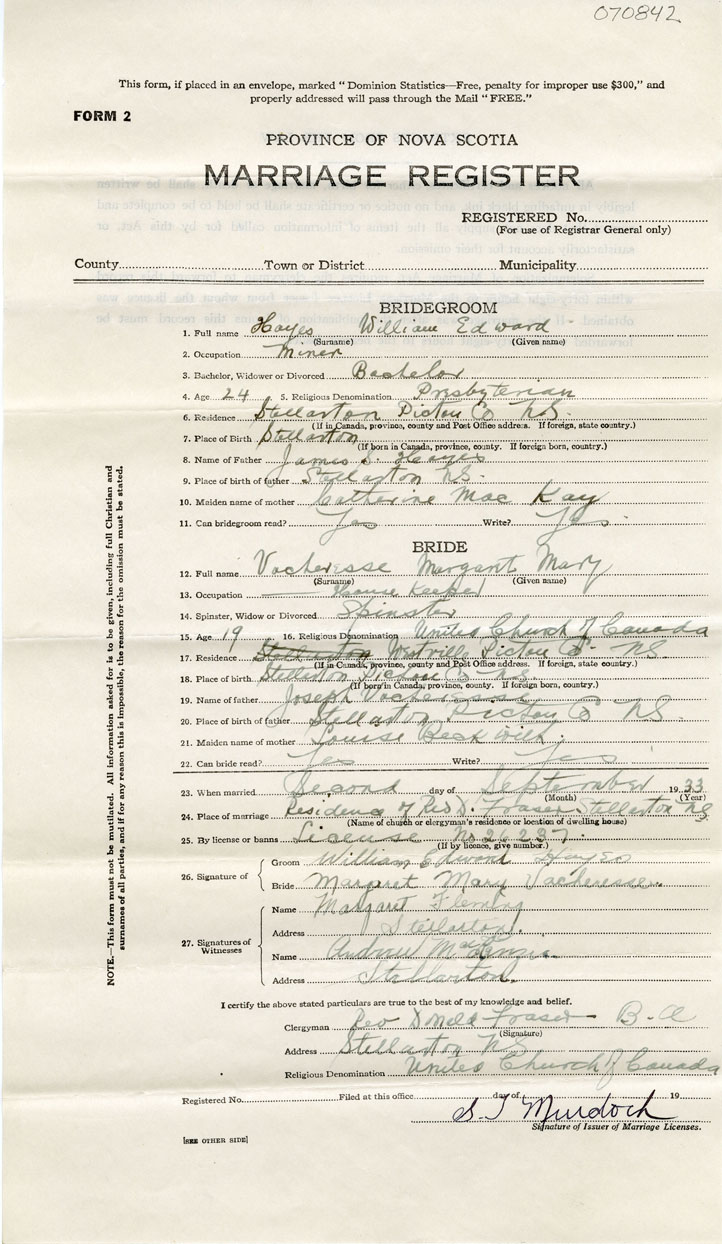 070842
This form, if placed in an envelope, marked "Dominion Statistics—Free, penalty for improper use $300," and
properly addressed will pass through the Mail "FREE."
FORM 2
PROVINCE OF NOVA SCOTIA
MARRIAGE REGISTER
REGISTERED No.
(For use of Registrar General only)
County Town or District Municipality
BRIDEGROOM
1. Full name Hayes William Edward
(Surname) (Given name)
2. Occupation Miner
3. Bachelor, Widower or Divorced Bachelor
4. Age 24 5. Religious Denomination Presbyterian
6. Residence Stellarton Pictou Co N.S.
(If in Canada, province, county and Post Office address. If foreign, state country.)
7. Place of Birth Stellarton
(If born in Canada, province, county. If foreign born, country.)
8. Name of Father James S. Hayes
9. Place of birth of father Stellarton N.S.
10. Maiden name of mother Catherine Mac Kay
11. Can bridegroom read? Yes Write? Yes
BRIDE
12. Full name Vacheresse Margaret Mary
(Surname) (Given name)
13. Occupation House Keeper
14. Spinster, Widow or Divorced Spinster
15. Age 19 16. Religious Denomination United Church of Canada
17. Residence Stellarton Westville Pictou Co. N.S.
(If in Canada, province, county and Post Office address. If foreign, state country.)
18. Place of birth Stellarton Pictou Co N.S.
(If born in Canada, province, county. If foreign born, country.)
19. Name of father Joseph Vacheresse
20. Place of birth of father Stellarton Pictou Co N.S.
21. Maiden name of mother Louise Beckwith
22. Can bride read? Yes Write? Yes
23. When married Second day of September 1933
(Month) (Year)
24. Place of marriage Residence of Rev D. Fraser Stellarton N.S.
(Name of church or clergyman's residence or location of dwelling house)
25. By license or banns License No 26237
(If by licence, give number.)
26. Signature of Groom William Edward Hayes
Bride Margaret Mary Vacheresse
27. Signatures of Witnesses Name Margaret Fleming
Address Stellarton.
Name Andrew
Address Stellarton.
I certify the above stated particulars are true to the best of my knowledge and belief.
Clergyman Rev Donald Fraser B.A
(Signature)
Address Stellarton N.S
Religious Denomination United Church of Canada
Registered No. Filed at this office day of 19
S. J Murdoch
Signature of Issuer of Marriage Licenses.
[SEE OTHER SIDE]
NOTE.—This form must not be mutilated. All information asked for is to be given, including full Christian and
surnames of all parties, and if for any reason this is impossible, the reason for the omission must be stated.